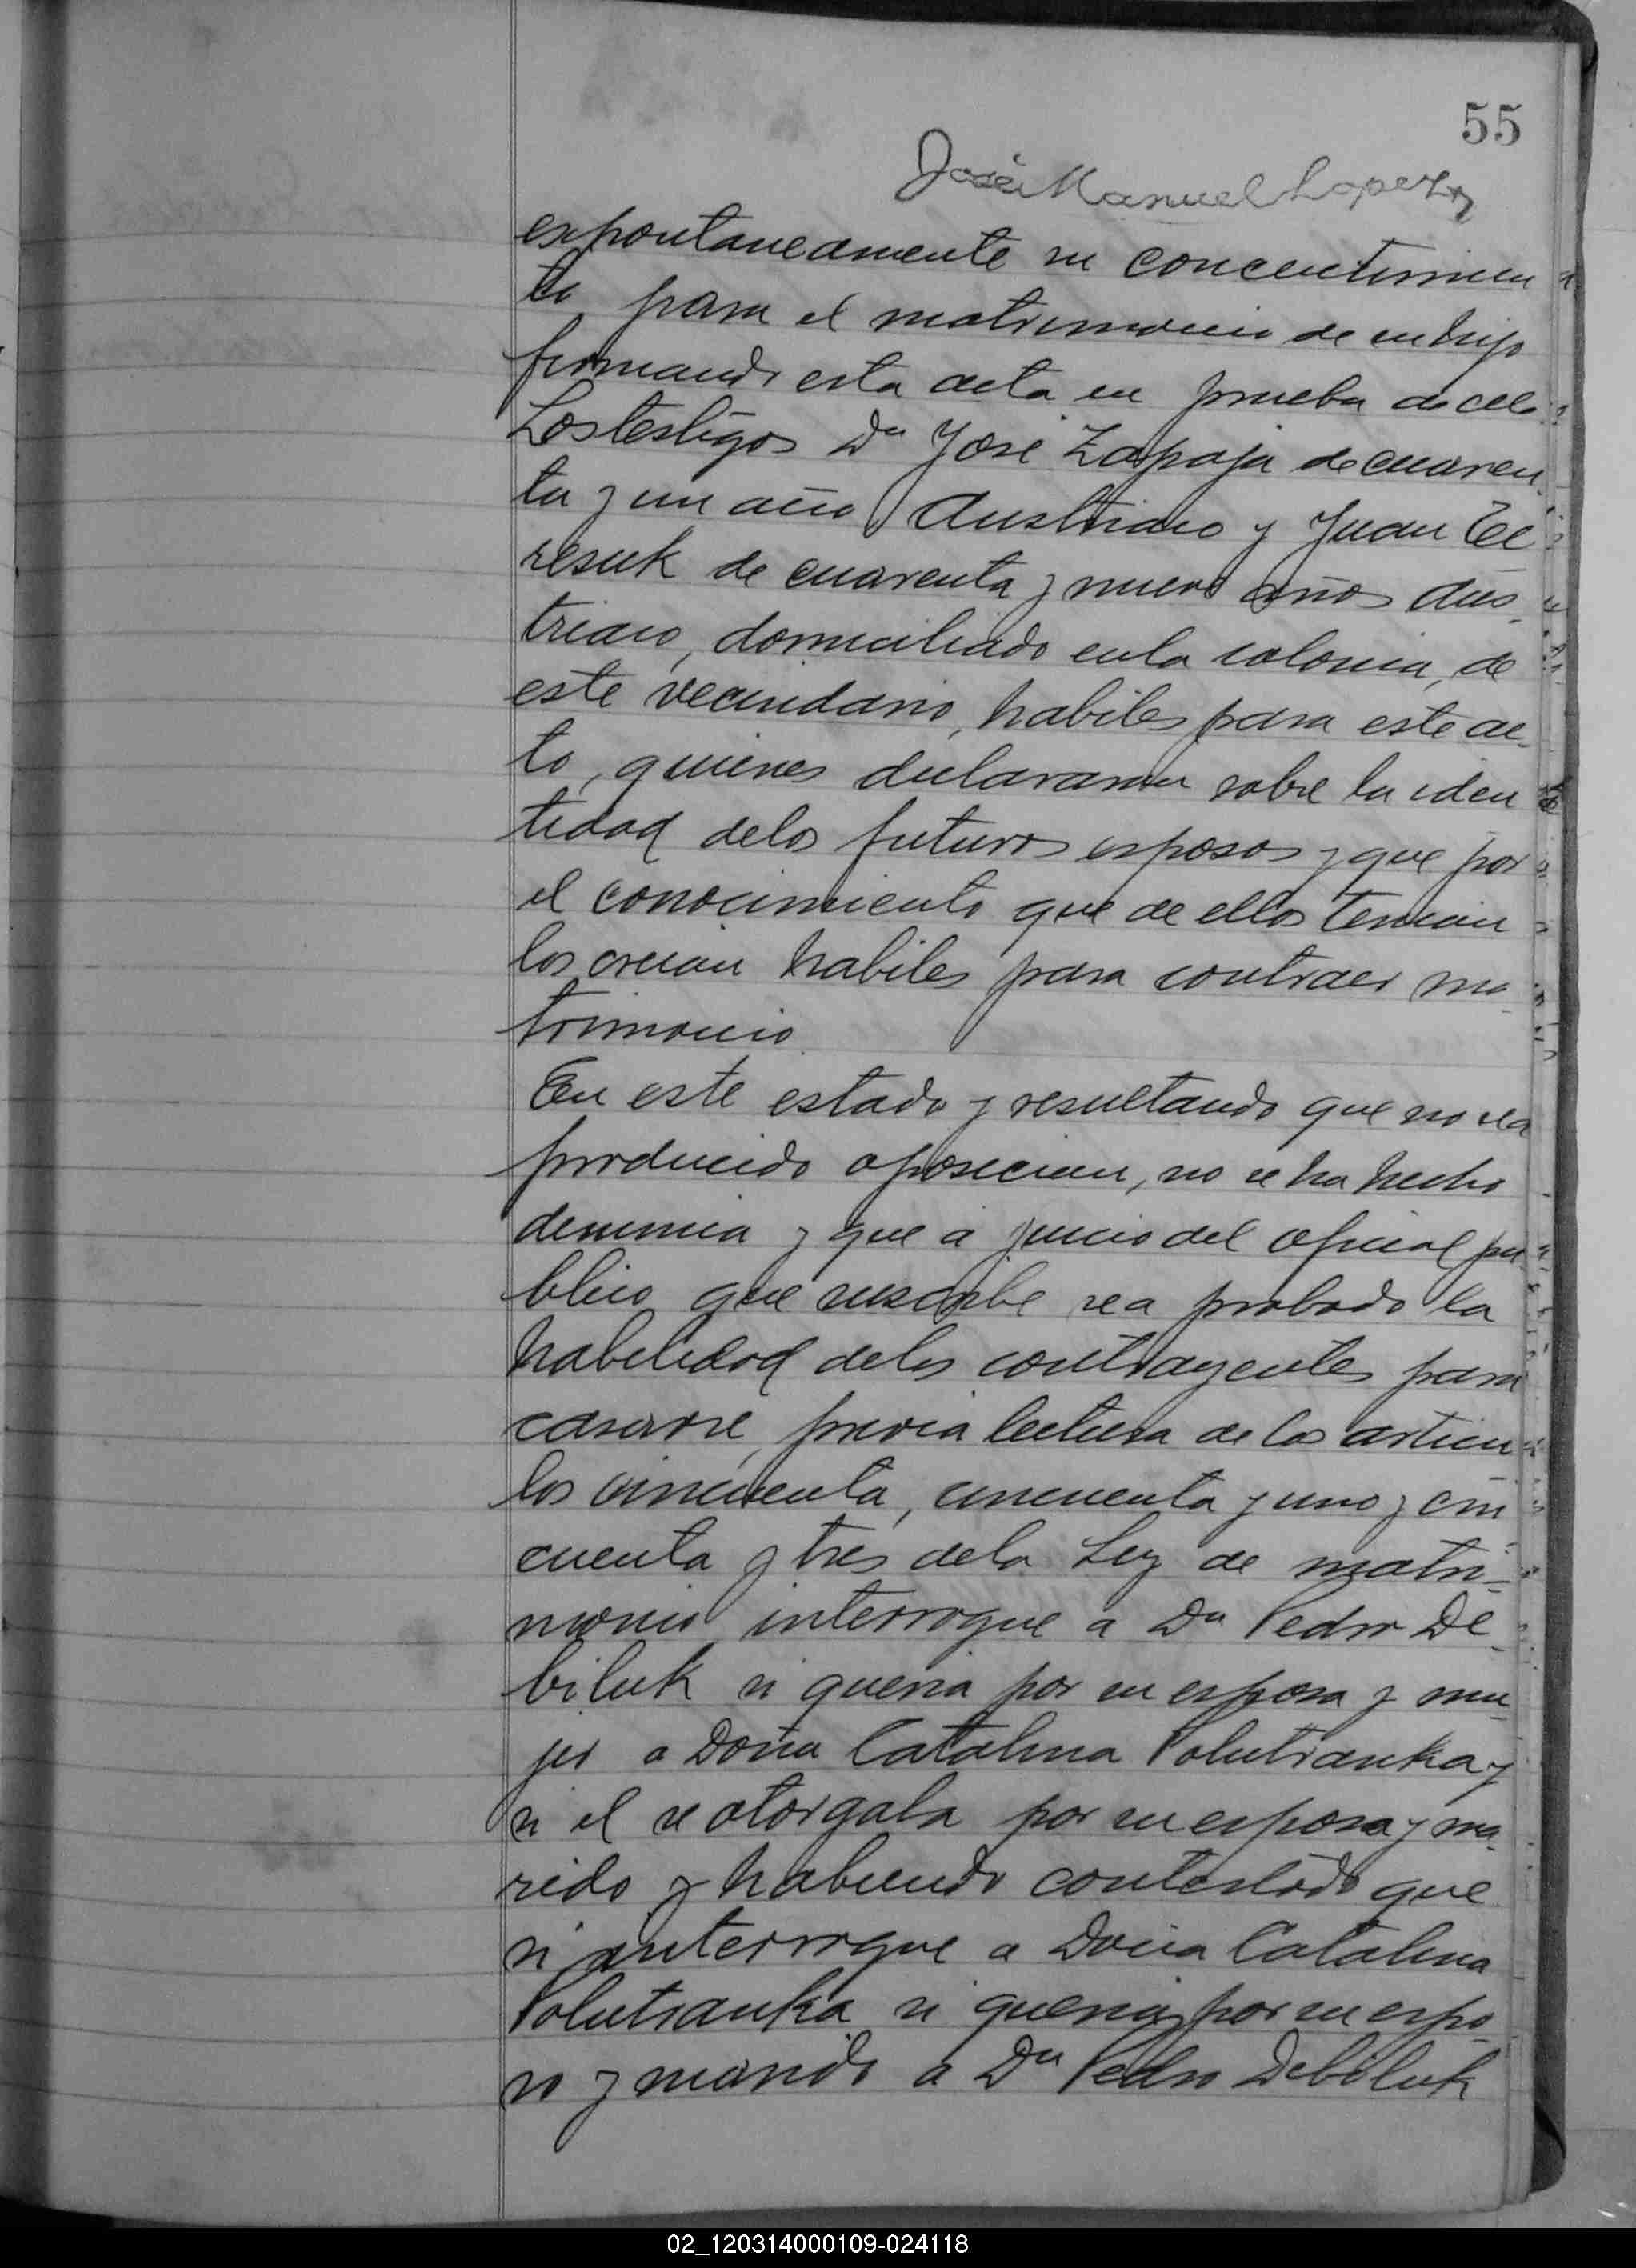 55
José Manuel Lopez
expontaneamente su concentimien
to para el matrimonio de su hijo
firmando esta acta en prueba de ello
Los testigos Dn José Zapaja de cuaren
ta y un año Austriaco y Juan
resuk de cuarenta y nueve años Aus-
triaco, domiciliado en la colonia, de
este vecindario, habiles para este ac-
to, quienes declararon sobre la iden
tidad de los futuros esposos y que por
el conocimiento que de ellos tenian
los creian habiles para contraer ma-
trimonio
En este estado y resultando que no se a
producido oposicion, no se ha hecho
denuncia y que a juicio del oficial pu
blico que suscribe se a probado la
habilidad de los contrayentes para
casarse, previa lectura de los articu
los cincuenta, cincuenta y uno y cin
cuenta y tres de la Ley de matri-
monio interrogue a Dn Pedro De-
biluk si queria por su esposa y mu-
jer a Doña Catalina Polutranka y
si el se otorgaba por su esposo y ma-
rido y habiendo contestado que
si interrogue a Doña Catalina
Polutranka si queria por su espo-
so y marido a Dn Pedro Debiluk
02_120314000109-024118